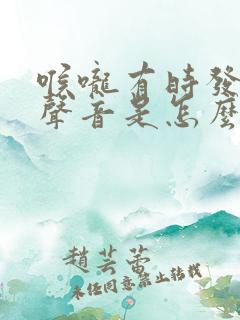 喉嚨有時發
聲音是怎麼
趙芸蕾
未经同意禁止转载